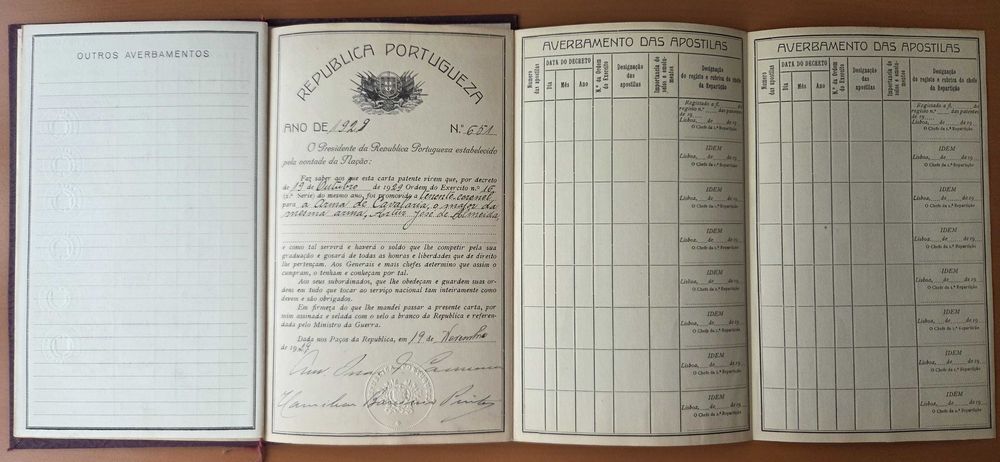 OUTROS AVERBAMENTOS
REPUBLICA PORTUGUEZA
ANO DE 1929 N.º 651
O Presidente da Republica Portugueza estabelecido
pela vontade da Nação:
Faz saber aos que esta carta patente virem que, por decreto
de 19 de Outubro de 1929 Ordem do Exercito n.º 16
(2.ª Serie) do mesmo ano, foi promovido a tenente-coronel
para a Arma de Cavalaria, o major da
mesma arma, Artur José de Almeida,
e como tal servirá e haverá o soldo que lhe competir pela sua
graduação e gosará de todas as honras e liberdades que de direito
lhe pertençam. Aos Generais e mais chefes determino que assim o
cumpram, o tenham e conheçam por tal.
Aos seus subordinados, que lhe obedeçam e guardem suas or-
dens em tudo que tocar ao serviço nacional tam inteiramente como
devem e são obrigados.
Em firmeza do que lhe mandei passar a presente carta, por
mim assinada e selada com o selo a branco da Republica e referen-
dada pelo Ministro da Guerra.
Dada nos Paços da Republica, em 19 de Dezembro
de 1929
AVERBAMENTO DAS APOSTILAS
Numero das apostilas
DATA DO DECRETO
Dia Mês Ano
N.º da Ordem do Exercito
Designação das apostilas
Importancia de soldos e emolumentos
Designação do registo e rubrica do chefe da Repartição
Registado a fl. do
registo n.º das patentes
de 19
Lisboa, de de 19
O Chefe da 1.ª Repartição
IDEM
Lisboa, de de 19
O Chefe da 1.ª Repartição
IDEM
Lisboa, de de 19
O Chefe da 1.ª Repartição
IDEM
Lisboa, de de 19
O Chefe da 1.ª Repartição
IDEM
Lisboa, de de 19
O Chefe da 1.ª Repartição
IDEM
Lisboa, de de 19
O Chefe da 1.ª Repartição
IDEM
Lisboa, de de 19
O Chefe da 1.ª Repartição
IDEM
Lisboa, de de 19
O Chefe da 1.ª Repartição
AVERBAMENTO DAS APOSTILAS
Numero das apostilas
DATA DO DECRETO
Dia Mês Ano
N.º da Ordem do Exercito
Designação das apostilas
Importancia de soldos e emolumentos
Designação do registo e rubrica do chefe da Repartição
Registado a fl. do
registo n.º das patentes
de 19
Lisboa, de de 19
O Chefe da 1.ª Repartição
IDEM
Lisboa, de de 19
O Chefe da 1.ª Repartição
IDEM
Lisboa, de de 19
O Chefe da 1.ª Repartição
IDEM
Lisboa, de de 19
O Chefe da 1.ª Repartição
IDEM
Lisboa, de de 19
O Chefe da 1.ª Repartição
IDEM
Lisboa, de de 19
O Chefe da 1.ª Repartição
IDEM
Lisboa, de de 19
O Chefe da 1.ª Repartição
IDEM
Lisboa, de de 19
O Chefe da 1.ª Repartição